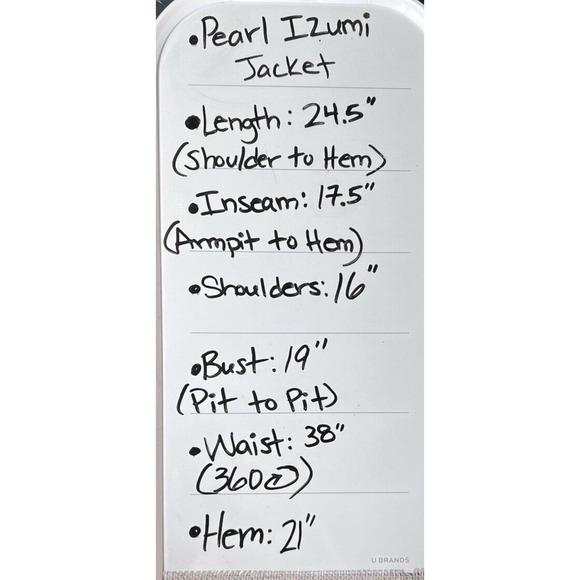 •Pearl Izumi
Jacket
•Length: 24.5"
(Shoulder to Hem)
•Inseam: 17.5"
(Armpit to Hem)
•Shoulders: 16"
•Bust: 19"
(Pit to Pit)
•Waist: 38"
(360↻)
•Hem: 21"
U BRANDS